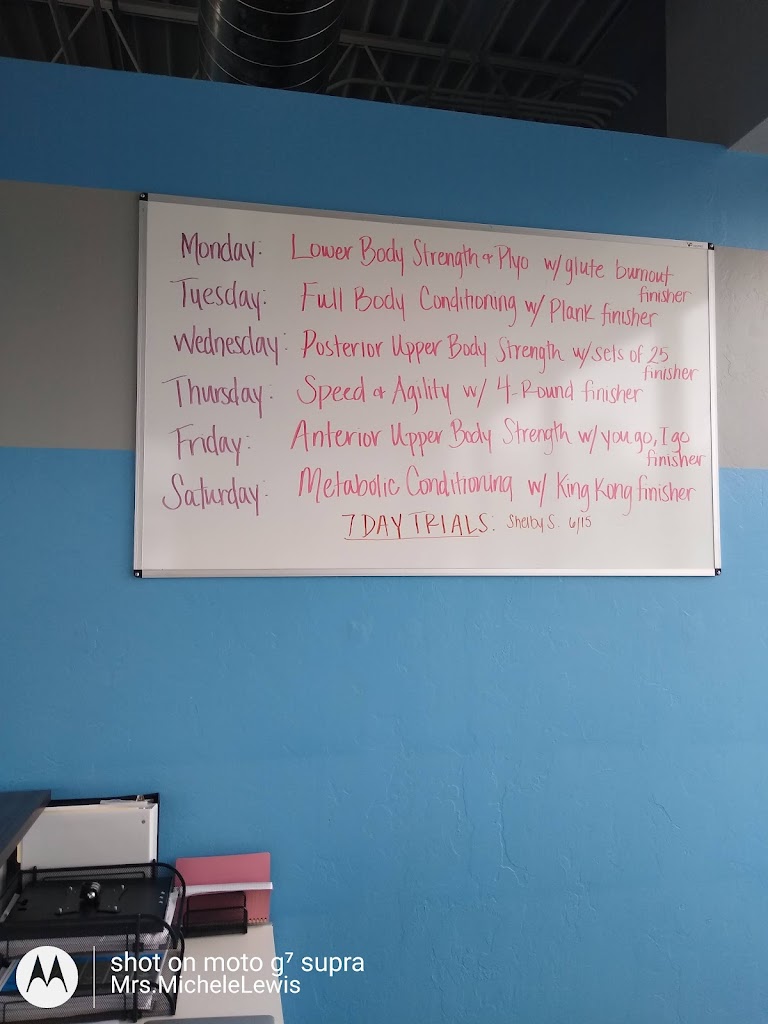 Monday: Lower Body Strength & Plyo w/ glute burnout
finisher
Tuesday: Full Body Conditioning w/ Plank finisher
Wednesday: Posterior Upper Body Strength w/ sets of 25
finisher
Thursday: Speed & Agility w/ 4-Round finisher
Friday: Anterior Upper Body Strength w/ you go, I go
finisher
Saturday: Metabolic Conditioning w/ King Kong finisher
7 DAY TRIALS: Shelby S. 6/15
shot on moto g⁷ supra
Mrs.MicheleLewis